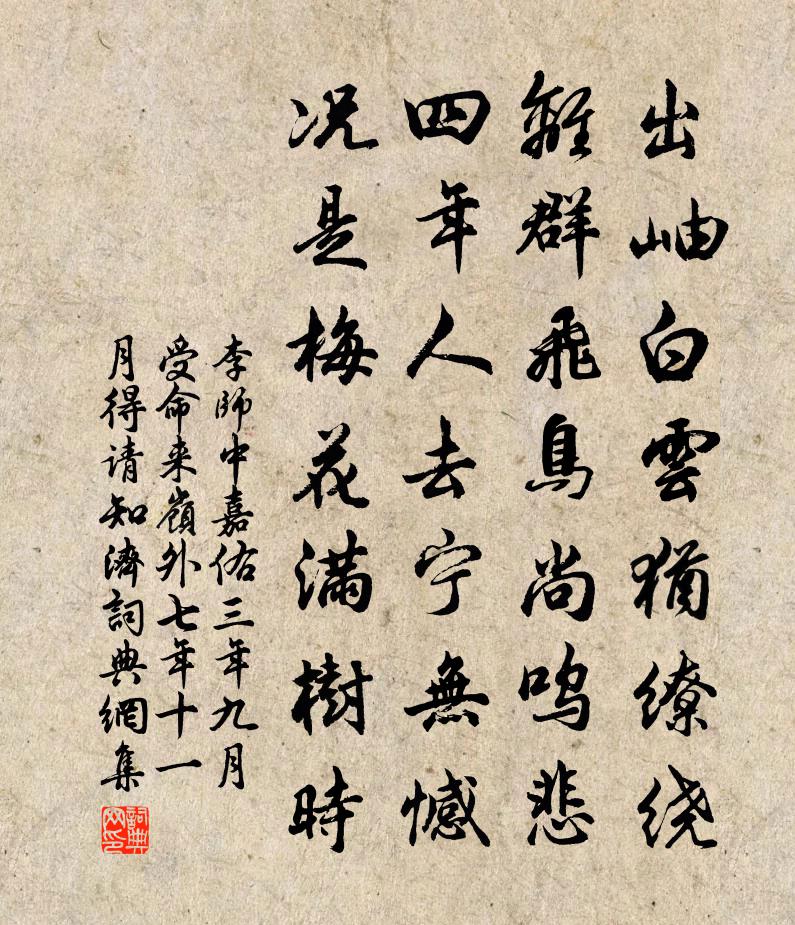 出岫白雲猶繚绕
離群飛鳥尚鸣悲
四年人去宁無憾
况是梅花满樹時
李師中嘉佑三年九月
受命来嶺外七年十一
月得请知濟詞典網集
詞典
网印